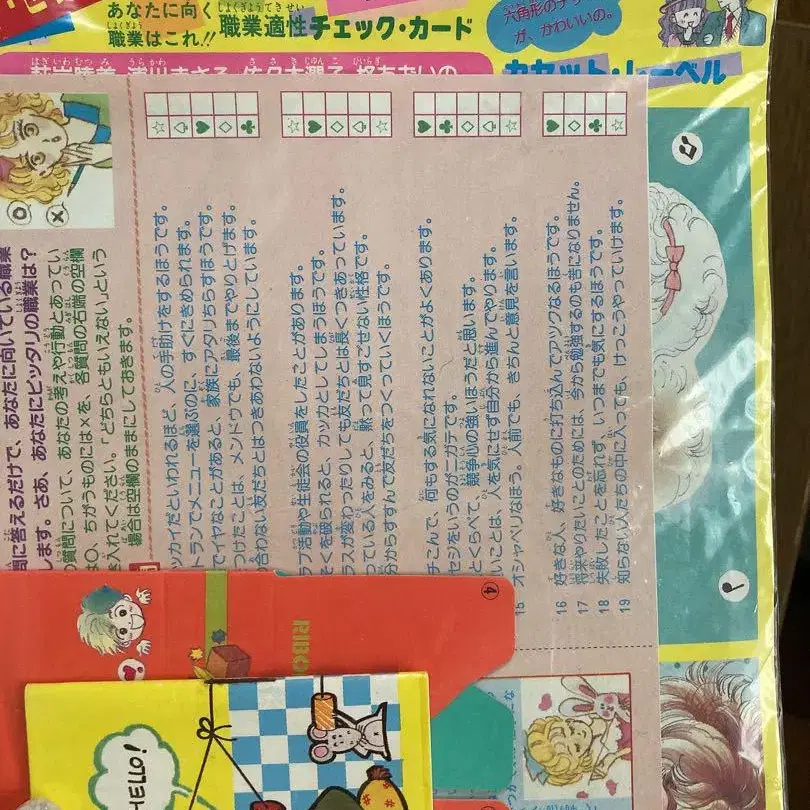 あなたに向く
職業はこれ!!
職業適性チェック・カード
六角形の
が、かわいいの。
カセット・レーベル
間に答えるだけで、あなたに向いている職業
します。さあ、あなたにピッタリの職業は?
の質問について、あなたの考えや行動とあってい
は○、ちがうものには×を、各質問の右端の空欄
き入れてください。「どちらともいえない」という
場合は空欄のままにしておきます。
ッカイだといわれるほど、人の手助けをするほうです。
トランでメニューを選ぶのに、すぐにきめられます。
でイヤなことがあると、家族にアタリちらすほうです。
つけたことは、メンドウでも、最後までやりとげます。
合わない友だちとはつきあわないようにしています。
ブ活動や生徒会の役員をしたことがあります。
を破られると、カッカとしてしまうほうです。
ラスが変わったりしても友だちとは長くつきあっています。
っている人をみると、黙って見すごせない性格です。
分からすすんで友だちをつくっていくほうです。
チこんで、何もする気になれないことがよくあります。
セジをいうのがニガテです。
とくらべて、競争心の強いほうだと思います。
いことは、人を気にせず自分から進んでやります。
15 オシャベリなほう。人前でも、きちんと意見を言います。
16 好きな人、好きなものに打ち込んでアツクなるほうです。
17 将来やりたいことのためには、今から勉強するのも苦になりません。
18 失敗したことを忘れず、いつまでも気にするほうです。
19 知らない人たちの中に入っても、けっこうやっていけます。
④
RIBO
HELLO!